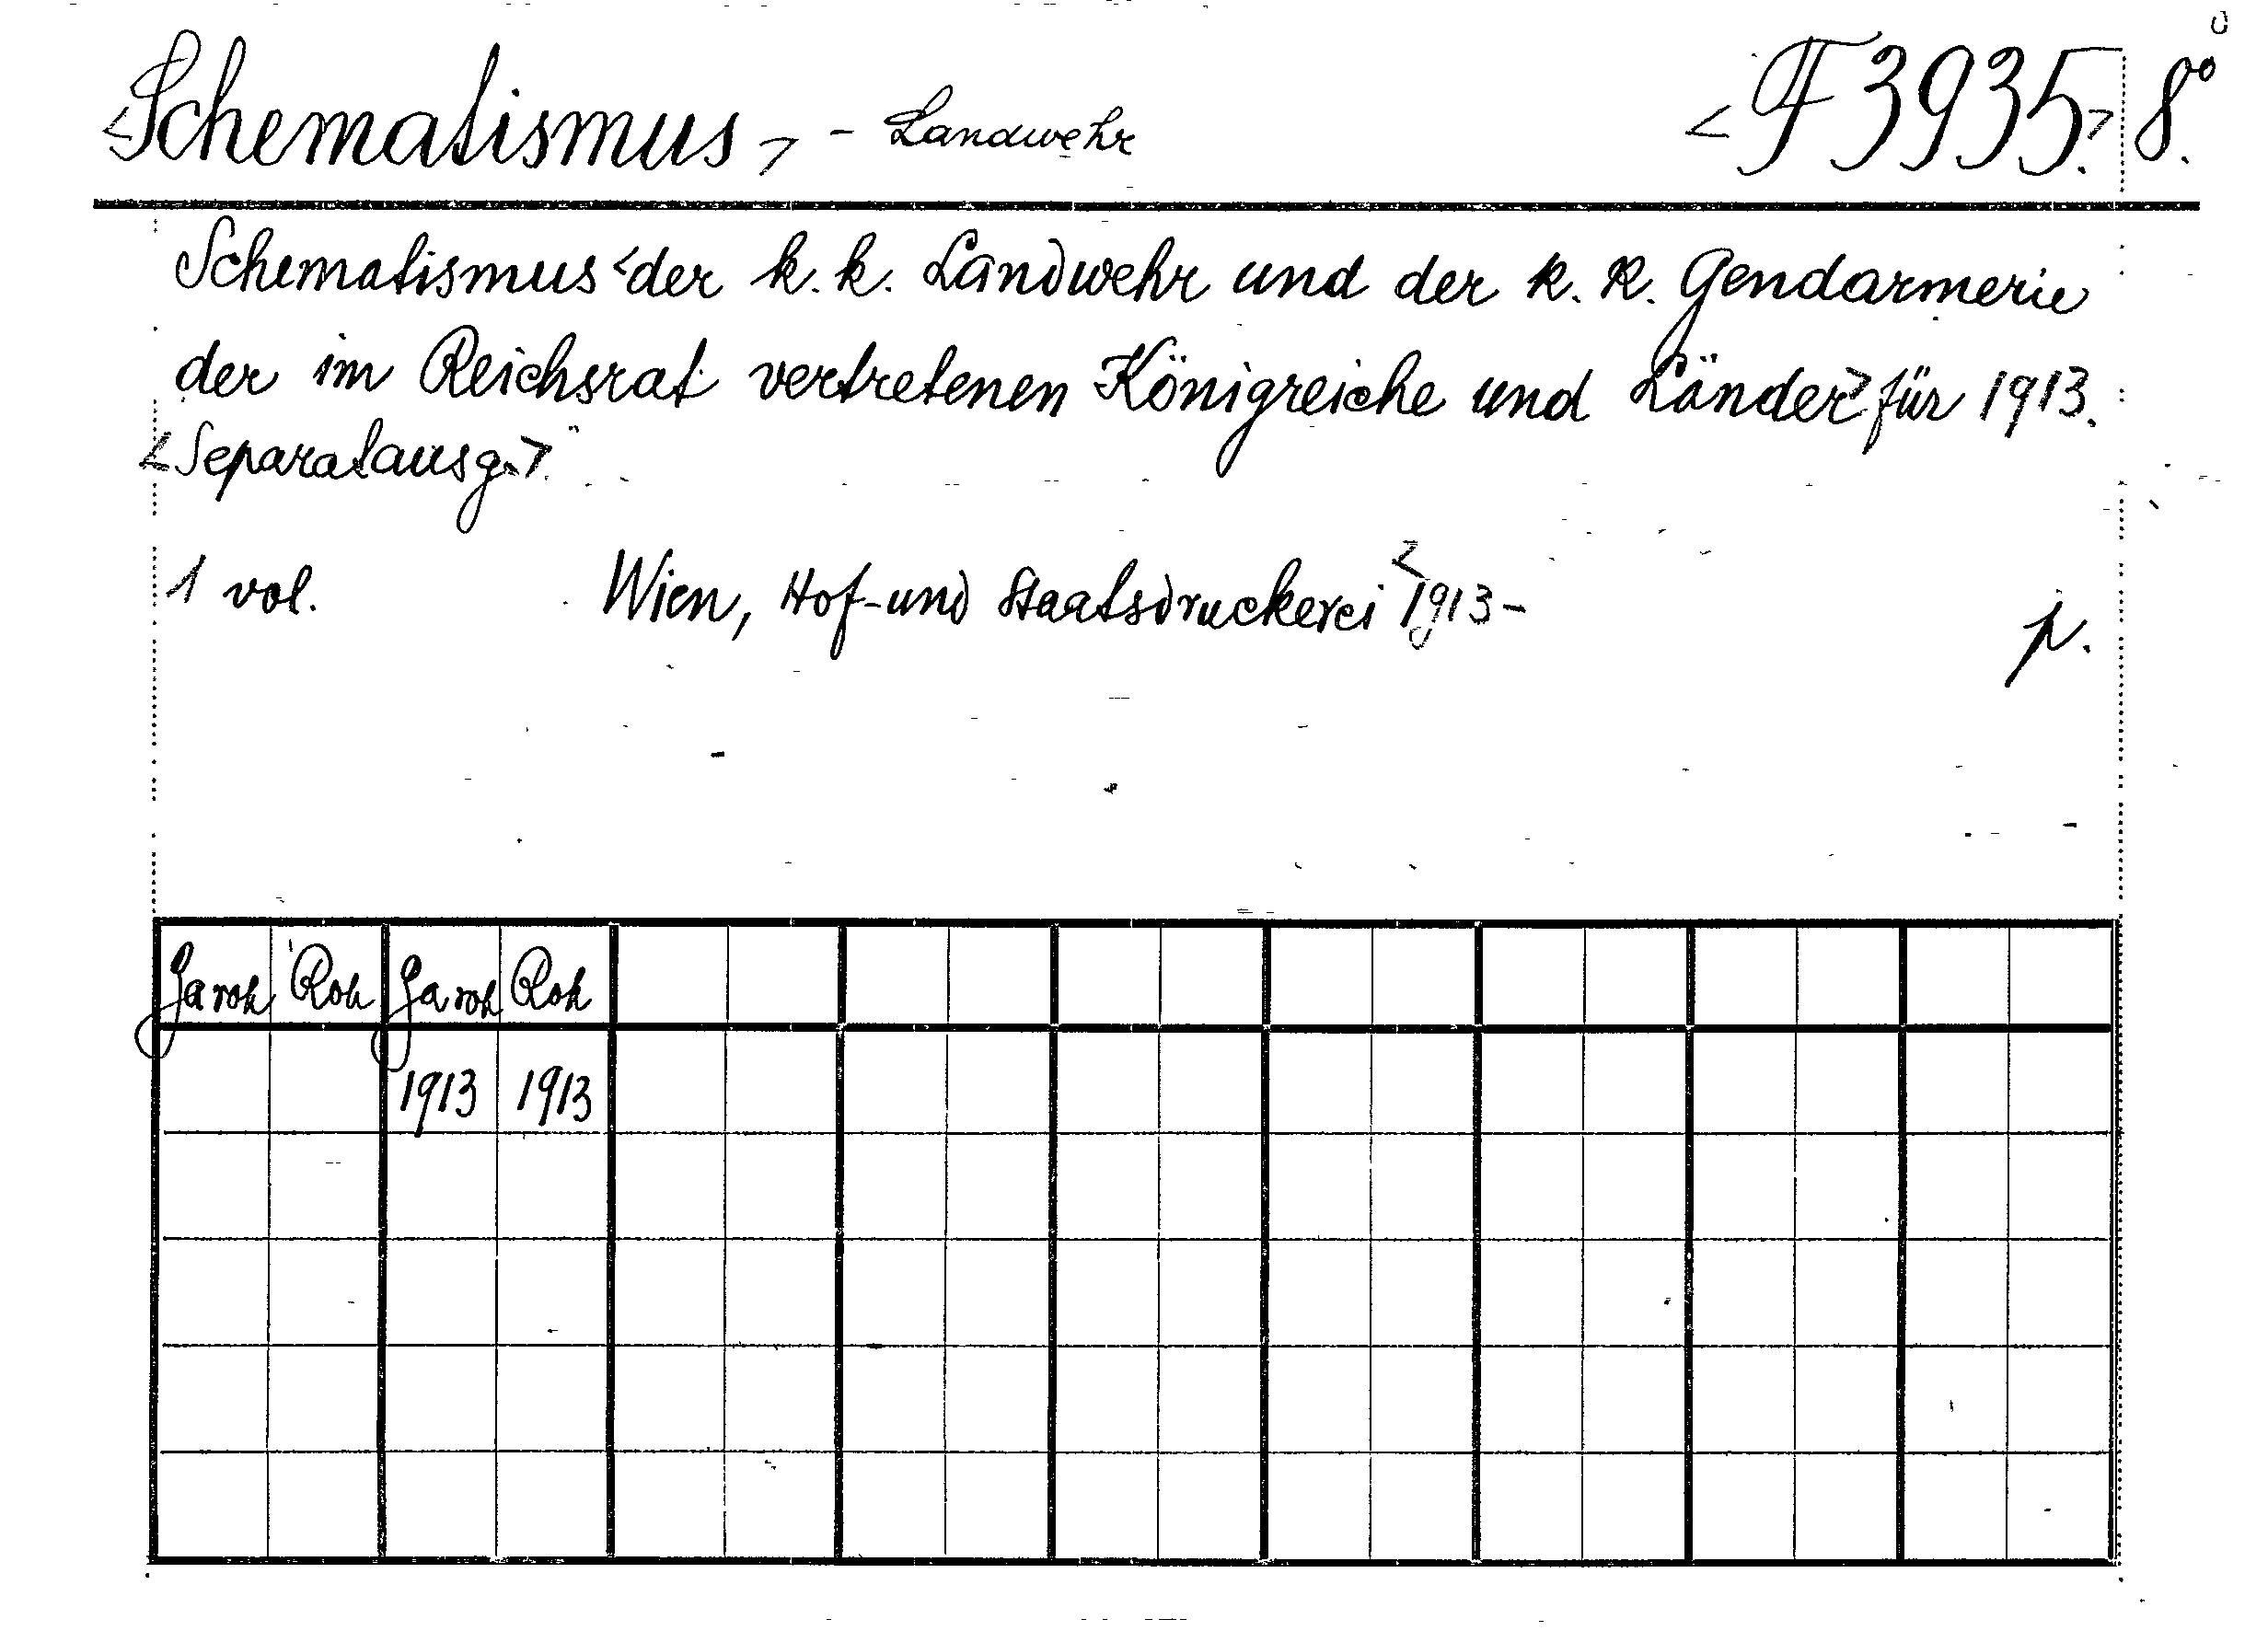 <Schematismus> - Landwehr <F 3935.> 8°.
Schematismus <der k. k. Landwehr und der k. k. Gendarmerie
der im Reichsrat vertretenen Königreiche und Länder> für 1913.
<Separatausg.>
1 vol. Wien, Hof- und Staatsdruckerei <1913-
p.
Jarok Rok Jarok Rok
1913 1913